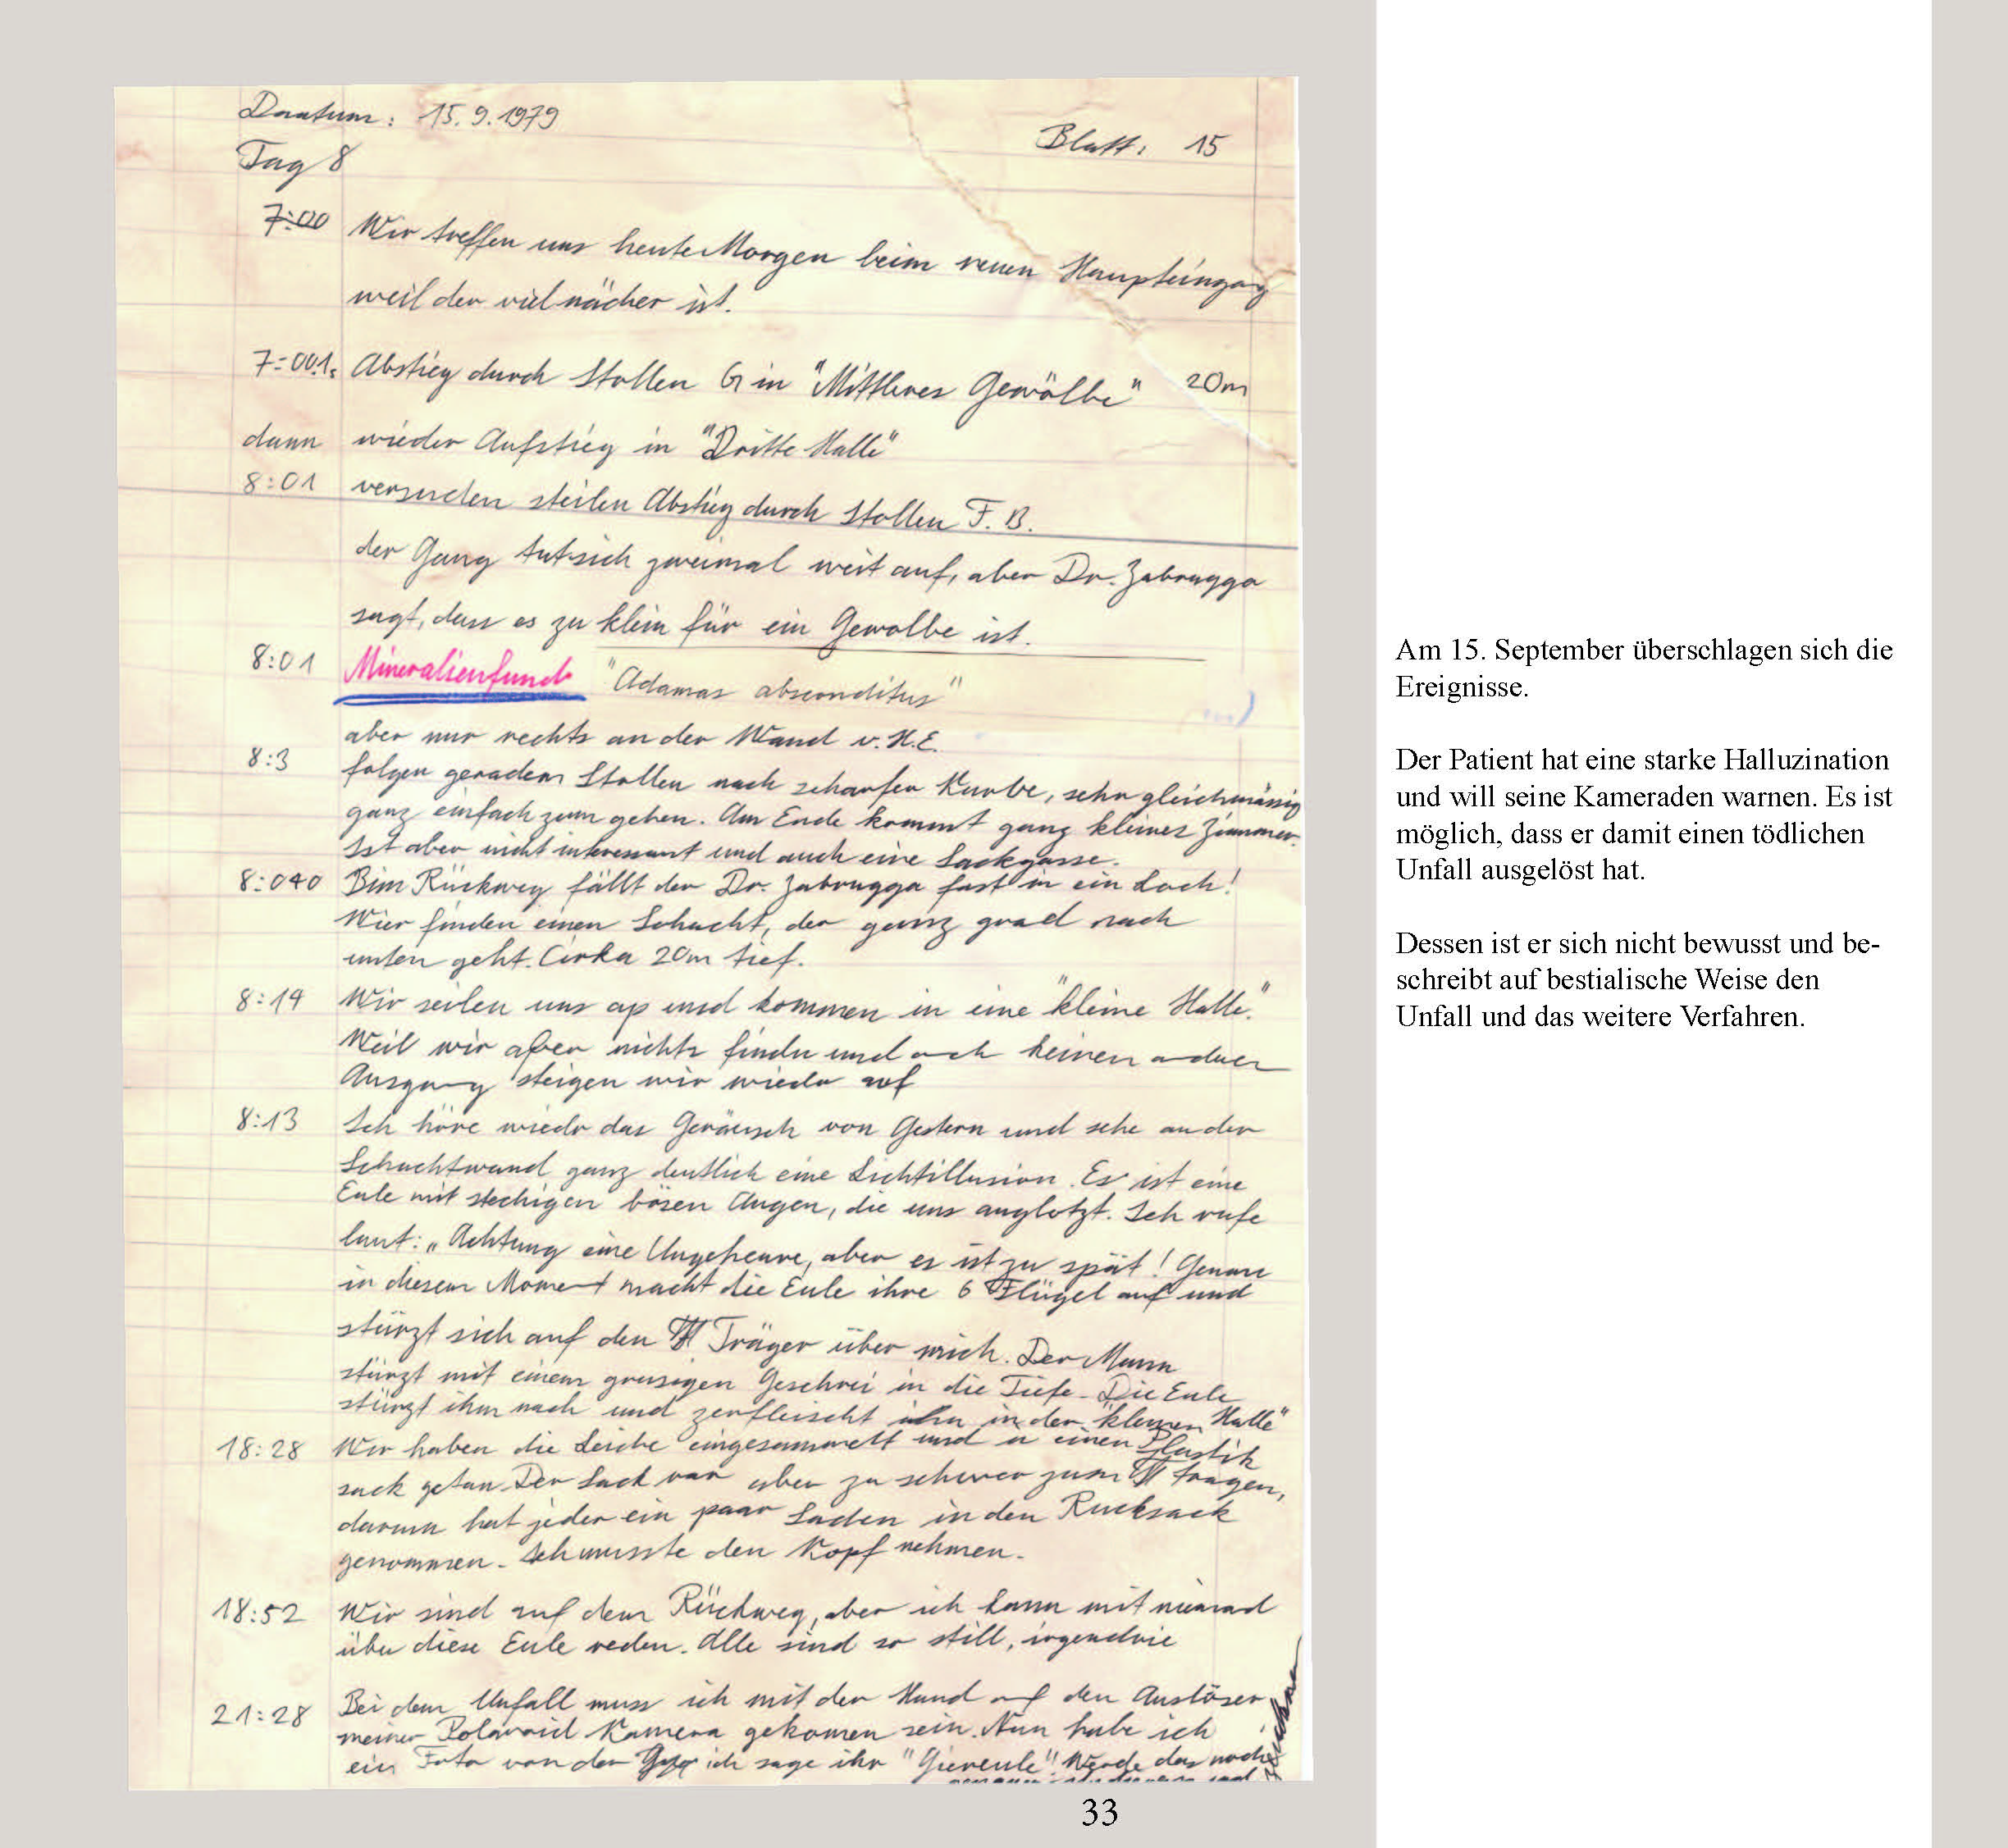 Daatum: 15.9.1979
Blatt: 15
Tag 8
7:00 Wir treffen uns heute Morgen beim neuen Haupteingang
weil der viel nächer ist.
7:001. Abstieg durch Stollen G in "Mittleres Gewölbe" 20m
dann wieder Aufstieg in "Dritte Halle"
8:01 versuchen steilen Abstieg durch Stollen F.B.
der Gang tut sich zweimal weit auf, aber Dr. Zabrugga
sagt, dass es zu klein für ein Gewolbe ist.
8:01 Mineralienfund "Adamas absconditus"
aber nur rechts an der Wand v. H.E.
8:3 folgen geradem Stollen nach scharfer Kurbe, sehr gleichmässig
ganz einfach zum gehen. Am Ende kommt ganz kleines Zimmer.
Ist aber nicht interessant und auch eine Sackgasse.
8:040 Bim Rückweg fällt der Dr. Zabrugga fast in ein Loch!
Wier finden einen Schacht, der ganz grad nach
unten geht. Cirka 20m tief.
8:14 Wir seilen uns ap und kommen in eine "kleine Halle".
Weil wir aber nichts finden und auch keinen anderen
Ausgang steigen wir wieder auf
8:13 Ich höre wieder das Geräusch von Gestern und sehe an der
Schachtwand ganz deutlich eine Lichtillusion. Es ist eine
Eule mit stechigen bösen Augen, die uns anglotzt. Ich rufe
laut: „Achtung eine Ungeheure, aber es ist zu spät! Genau
in diesem Moment macht die Eule ihre 6 Flügel auf und
stürzt sich auf den Träger über mich. Der Mann
stürzt mit einem grusigen Geschrei in die Tiefe. Die Eule
stürzt ihm nach und zerfleischt ihn in der "kleinen Halle"
18:28 Wir haben die Leiche eingesammelt und in einen Plastik
sack getan. Der Sack war aber zu schwer zum tragen,
darum hat jeder ein paar Sachen in den Rucksack
genommen. Ich musste den Kopf nehmen.
18:52 Wir sind auf dem Rückweg, aber ich kann mit niemad
über diese Eule reden. Alle sind so still, irgendwie
21:28 Bei dem Unfall muss ich mit der Hand auf den Auslöser
meiner Polaroid Kamera gekomen sein. Nun habe ich
ein Foto von der ich sage ihr "Giereule". Werde das noch
Am 15. September überschlagen sich die
Ereignisse.
Der Patient hat eine starke Halluzination
und will seine Kameraden warnen. Es ist
möglich, dass er damit einen tödlichen
Unfall ausgelöst hat.
Dessen ist er sich nicht bewusst und be-
schreibt auf bestialische Weise den
Unfall und das weitere Verfahren.
33